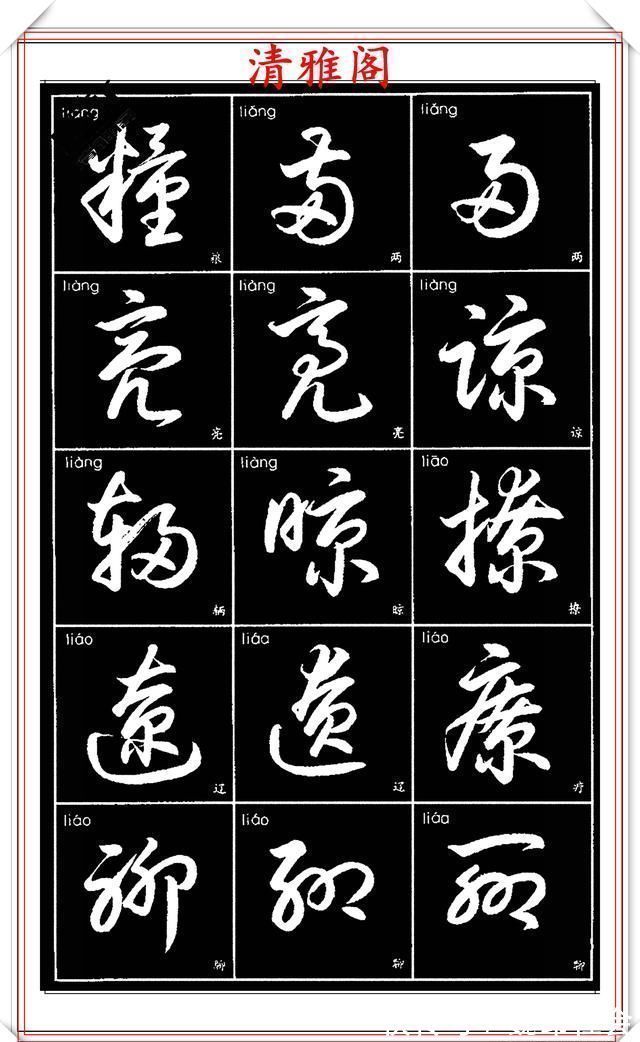 清雅阁
liáng liǎng liǎng
糧 两 两
粮 两 两
liàng liàng liàng
亮 亮 谅
亮 亮 谅
liàng liàng liāo
辆 晾 撩
辆 晾 撩
liáo liáa liáo
辽 辽 疗
辽 辽 疗
liáo liáo liáa
聊 聊 聊
聊 聊 聊